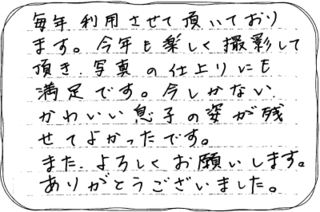 毎年 利用させて頂いており
ます。今年も楽しく撮影して
頂き、写真の仕上りにも
満足です。今しかない
かわいい息子の姿が残
せてよかったです。
また、よろしくお願いします。
ありがとうございました。